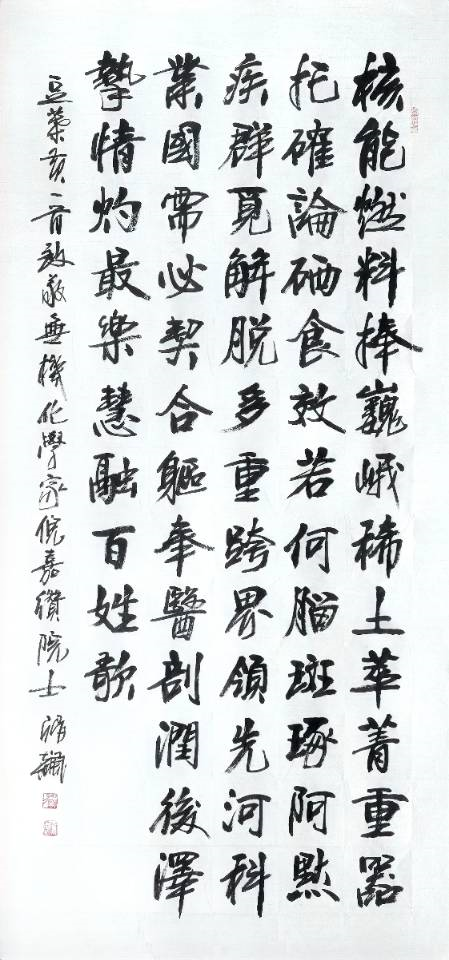 核能燃料捧巍峨稀土萃菁重器
托確論硒食效若何腦斑琢阿默
疾群覓解脫多重跨界領先河科
業國需必契合軀奉醫剖潤後澤
摯情灼最樂慧融百姓歌
豆葉黃二首致敬無機化學家倪嘉纘院士